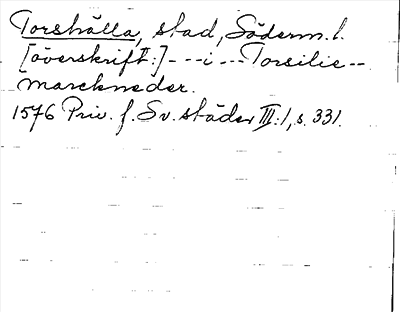 Torshälla, stad, Söderm. l.
[överskrift:] - - - i - - - Torsilie - -
marckneder.
1576 Priv. f. Sv. städer III:1, s. 331.